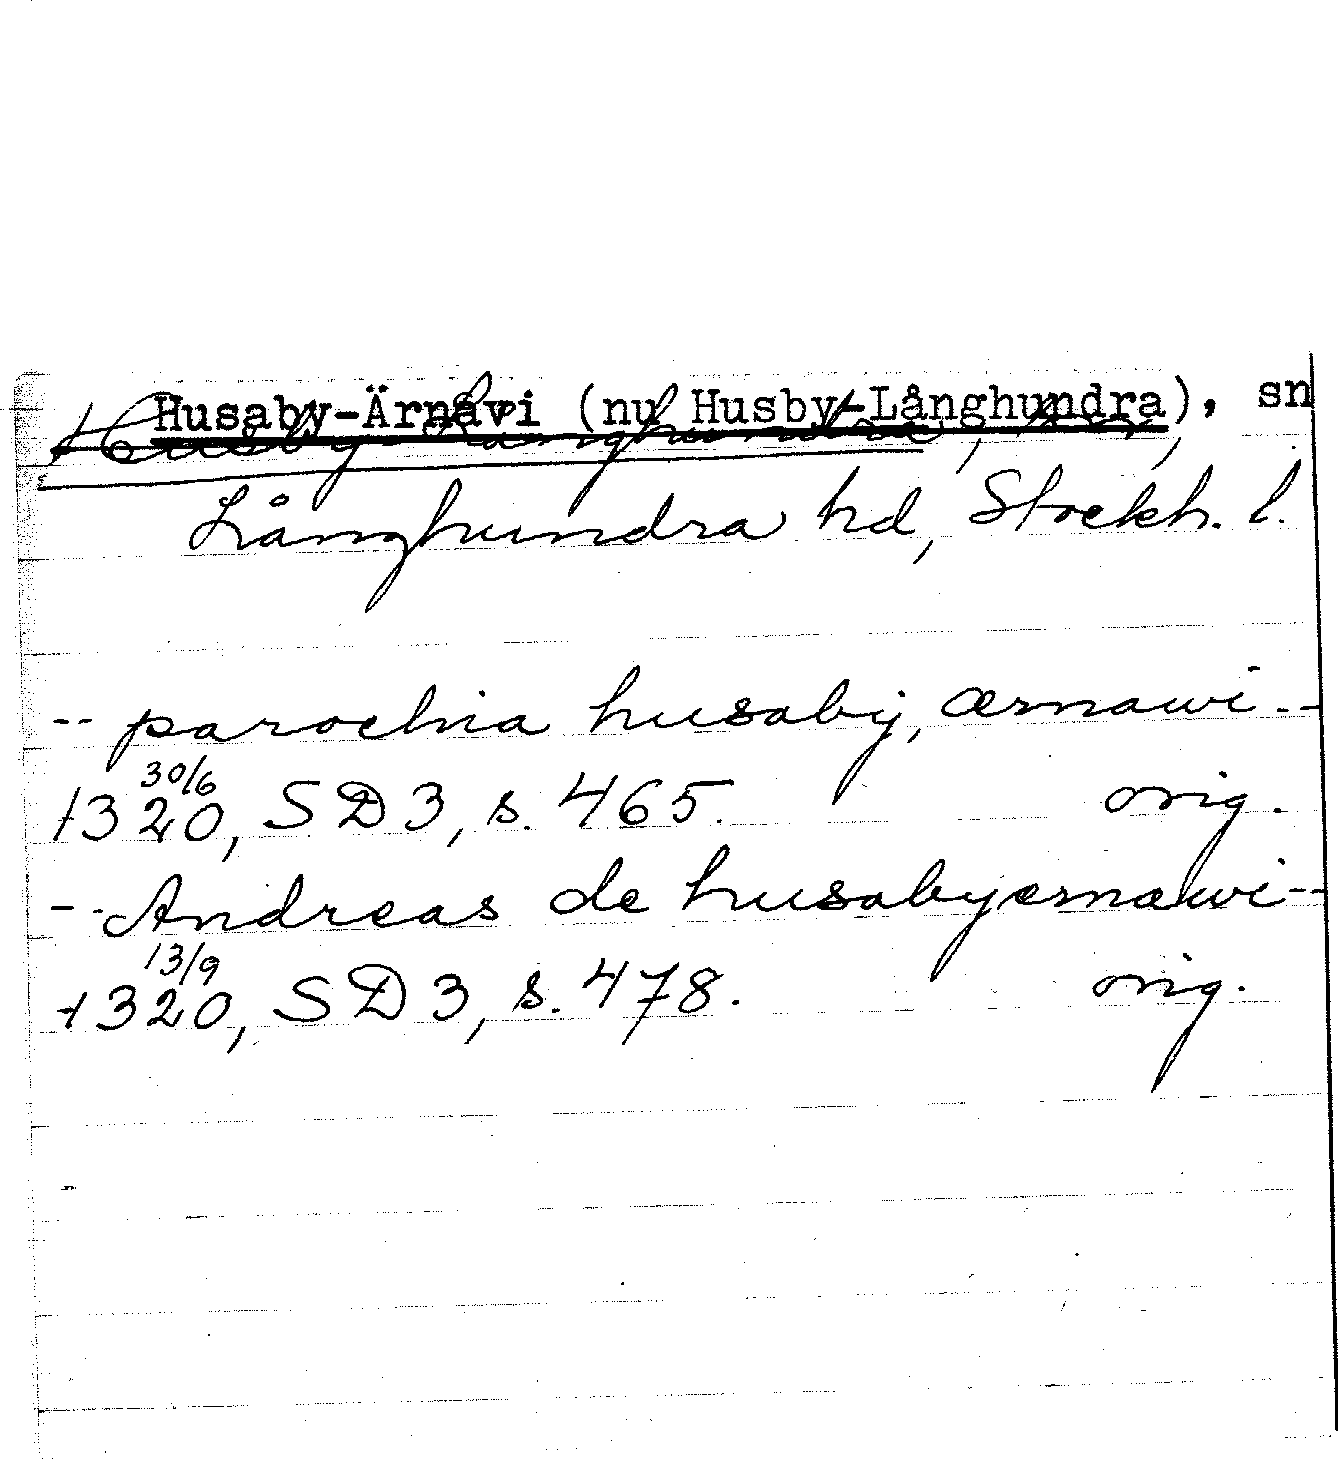 Husaby-Ärnavi (nu Husby-Långhundra), sn
Husby-Långhundra, sn,
Långhundra hd, Stockh. l.
-- parochia husaby, ærnawi --
30/6
1320, SD 3, s. 465. orig.
-- Andreas de husabyærnæwi --
13/9
1320, SD 3, s. 478. orig.